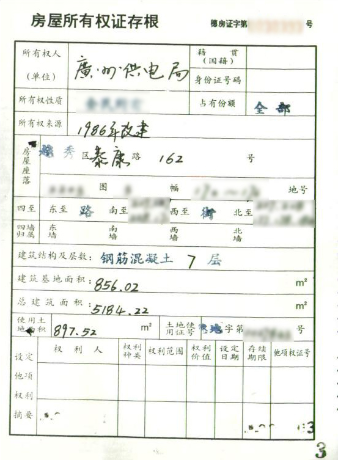 房屋所有权证存根
穗房证字第 号
所有权人(单位) 广州供电局 籍贯(国籍)
身份证号码
所有权性质 全民所有 占有份额 全部
所有权来源 1986年改建
房屋座落 越秀区泰康路 162 号
图 幅 地号
四至 东至 路 南至 西至 街 北至
四墙归属 东墙 南墙 西墙 北墙
建筑结构及层数: 钢筋混凝土 7 层
建筑基地面积: 856.02 m²
总建筑面积: 5184.22 m²
使用土地面积 897.52 m² 土地使用证号 字第 号
设定他项权利摘要 权利人 权利种类 权利范围 权利价值 设定日期 存续期限 他项权证号
3